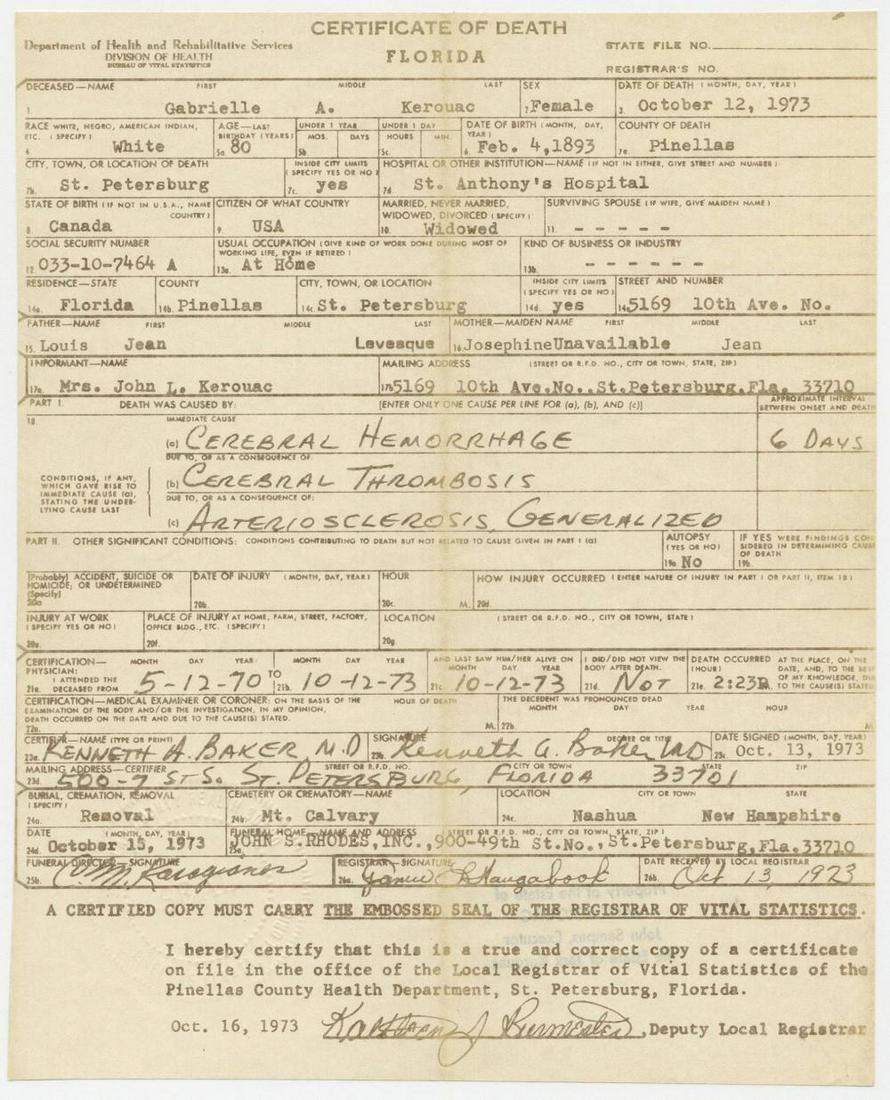 CERTIFICATE OF DEATH
Department of Health and Rehabilitative Services
DIVISION OF HEALTH
BUREAU OF VITAL STATISTICS
FLORIDA
STATE FILE NO.
REGISTRAR'S NO.
DECEASED—NAME FIRST MIDDLE LAST SEX DATE OF DEATH (MONTH, DAY, YEAR)
1. Gabrielle A. Kerouac 2. Female 3. October 12, 1973
RACE WHITE, NEGRO, AMERICAN INDIAN, AGE—LAST UNDER 1 YEAR UNDER 1 DAY DATE OF BIRTH (MONTH, DAY, COUNTY OF DEATH
ETC. (SPECIFY) BIRTHDAY (YEARS) MOS. DAYS HOURS MIN. YEAR)
4. White 5a 80 5b 5c. 6. Feb. 4,1893 7a. Pinellas
CITY, TOWN, OR LOCATION OF DEATH INSIDE CITY LIMITS HOSPITAL OR OTHER INSTITUTION—NAME (IF NOT IN EITHER, GIVE STREET AND NUMBER)
(SPECIFY YES OR NO)
7b. St. Petersburg 7c. yes 7d St. Anthony's Hospital
STATE OF BIRTH (IF NOT IN U.S.A., NAME CITIZEN OF WHAT COUNTRY MARRIED, NEVER MARRIED, SURVIVING SPOUSE (IF WIFE, GIVE MAIDEN NAME)
COUNTRY) WIDOWED, DIVORCED (SPECIFY)
8. Canada 9. USA 10. Widowed 11. - - - - -
SOCIAL SECURITY NUMBER USUAL OCCUPATION (GIVE KIND OF WORK DONE DURING MOST OF KIND OF BUSINESS OR INDUSTRY
WORKING LIFE, EVEN IF RETIRED)
12 033-10-7464 A 13a. At Home 13b. - - - - - -
RESIDENCE—STATE COUNTY CITY, TOWN, OR LOCATION INSIDE CITY LIMITS STREET AND NUMBER
(SPECIFY YES OR NO)
14a. Florida 14b. Pinellas 14c. St. Petersburg 14d. yes 14e. 5169 10th Ave. No.
FATHER—NAME FIRST MIDDLE LAST MOTHER—MAIDEN NAME FIRST MIDDLE LAST
15. Louis Jean Levesque 16. Josephine Unavailable Jean
INFORMANT—NAME MAILING ADDRESS (STREET OR R.F.D. NO., CITY OR TOWN, STATE, ZIP)
17a. Mrs. John L. Kerouac 17b 5169 10th Ave.No.,St.Petersburg,Fla. 33710
PART I. DEATH WAS CAUSED BY: [ENTER ONLY ONE CAUSE PER LINE FOR (a), (b), AND (c)] APPROXIMATE INTERVAL
BETWEEN ONSET AND DEATH
18. IMMEDIATE CAUSE
(a) CEREBRAL HEMORRHAGE 6 DAYS
DUE TO, OR AS A CONSEQUENCE OF:
CONDITIONS, IF ANY,
WHICH GAVE RISE TO
IMMEDIATE CAUSE (a),
STATING THE UNDER-
LYING CAUSE LAST
(b) CEREBRAL THROMBOSIS
DUE TO, OR AS A CONSEQUENCE OF:
(c) ARTERIOSCLEROSIS, GENERALIZED
PART II. OTHER SIGNIFICANT CONDITIONS: CONDITIONS CONTRIBUTING TO DEATH BUT NOT RELATED TO CAUSE GIVEN IN PART I (a) AUTOPSY IF YES WERE FINDINGS CON
(YES OR NO) SIDERED IN DETERMINING CAUSE
OF DEATH
19a No 19b.
(Probably) ACCIDENT, SUICIDE OR DATE OF INJURY (MONTH, DAY, YEAR) HOUR HOW INJURY OCCURRED (ENTER NATURE OF INJURY IN PART I OR PART II, ITEM 18)
HOMICIDE, OR UNDETERMINED
(Specify)
20a 20b. 20c. M. 20d.
INJURY AT WORK PLACE OF INJURY AT HOME, FARM, STREET, FACTORY, LOCATION (STREET OR R.F.D. NO., CITY OR TOWN, STATE)
(SPECIFY YES OR NO) OFFICE BLDG., ETC. (SPECIFY)
20e. 20f. 20g.
CERTIFICATION— MONTH DAY YEAR MONTH DAY YEAR AND LAST SAW HIM/HER ALIVE ON I DID/DID NOT VIEW THE DEATH OCCURRED AT THE PLACE, ON THE
PHYSICIAN: TO MONTH DAY YEAR BODY AFTER DEATH. (HOUR) DATE, AND, TO THE BEST
I ATTENDED THE OF MY KNOWLEDGE, DUE
21a. DECEASED FROM 5-12-70 21b. 10-12-73 21c 10-12-73 21d. NOT 21e. 2:23 TO THE CAUSE(S) STATED
CERTIFICATION—MEDICAL EXAMINER OR CORONER: ON THE BASIS OF THE HOUR OF DEATH THE DECEDENT WAS PRONOUNCED DEAD
EXAMINATION OF THE BODY AND/OR THE INVESTIGATION, IN MY OPINION, MONTH DAY YEAR HOUR
DEATH OCCURRED ON THE DATE AND DUE TO THE CAUSE(S) STATED.
22a. M. 22b. M.
CERTIFIER—NAME (TYPE OR PRINT) SIGNATURE DEGREE OR TITLE DATE SIGNED (MONTH, DAY, YEAR)
23a. KENNETH A. BAKER, M.D 23b. Kenneth A. Baker MD 23c Oct. 13, 1973
MAILING ADDRESS—CERTIFIER STREET OR R.F.D. NO. CITY OR TOWN STATE ZIP
23d. 500-7 ST S. ST. PETERSBURG, FLORIDA 33701
BURIAL, CREMATION, REMOVAL CEMETERY OR CREMATORY—NAME LOCATION CITY OR TOWN STATE
(SPECIFY)
24a. Removal 24b. Mt. Calvary 24c. Nashua New Hampshire
DATE (MONTH, DAY, YEAR) FUNERAL HOME—NAME AND ADDRESS (STREET OR R.F.D. NO., CITY OR TOWN, STATE, ZIP)
24d. October 15, 1973 25a. JOHN S.RHODES,INC.,900-49th St.No.,St.Petersburg,Fla.33710
FUNERAL DIRECTOR—SIGNATURE REGISTRAR—SIGNATURE DATE RECEIVED BY LOCAL REGISTRAR
25b. 26a. 26b. Oct 13, 1973
A CERTIFIED COPY MUST CARRY THE EMBOSSED SEAL OF THE REGISTRAR OF VITAL STATISTICS.
I hereby certify that this is a true and correct copy of a certificate
on file in the office of the Local Registrar of Vital Statistics of the
Pinellas County Health Department, St. Petersburg, Florida.
Oct. 16, 1973 ,Deputy Local Registrar